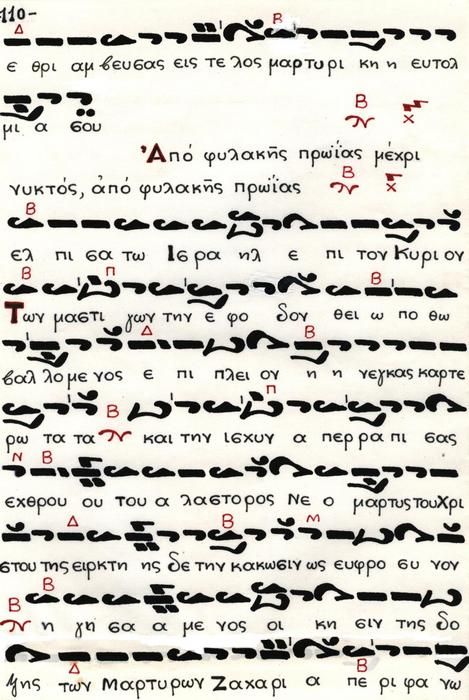 110-
Δ Β
ε θρι αμ βευσας εις τε λος μαρτυ ρι κη η ευτολ
Β
μι α σου
Ἀπό φυλακῆς πρωΐας μέχρι
νυκτός, ἀπό φυλακῆς πρωΐας Β
Β
ελ πι σα τω Ισ ρα ηλ ε πι τον Κυρι ον
Β Π Β
Των μαστι γων την ε φο δον θει ω πο θω
Δ Β
βαλ λο με νος ε πι πλει ον η η νεγκας καρτε
Β Π
ρω τα τα και την ισχυν α περ ρα πι σας
Ν Β
εχθρου ου του α λαστορος Νε ο μαρτυς του Χρι
Δ Β Μ
στου της ειρκτη ης δε την κακωσιν ως ευφρο συ νον
Β Β
η γη σα α με νος οι κη σιν της δο
ξης των Μαρτυρων Ζαχαρι α πε ρι φα νω
Δ Β